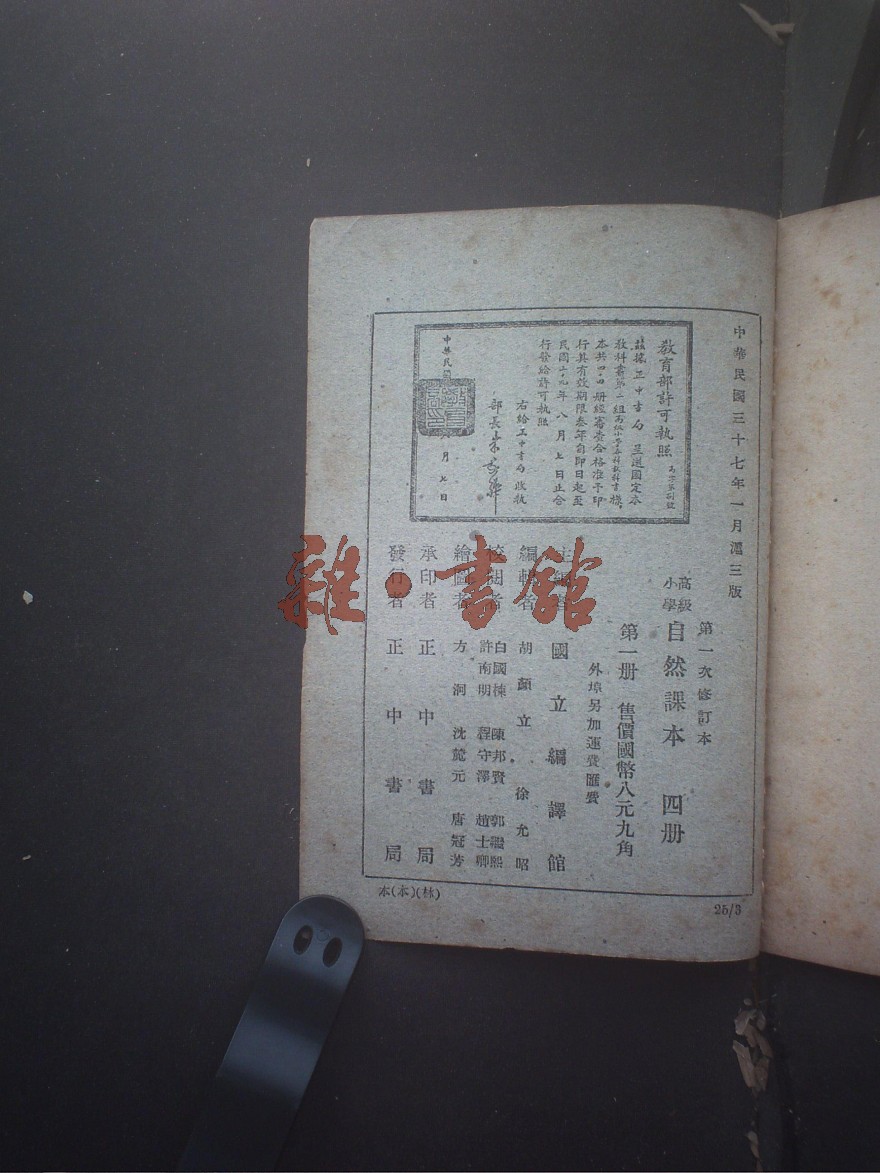 中華民國三十七年一月滬三版
教育部許可執照
茲據正中書局呈送國定本
教科書第二組高級小學各科教科書樣
本共四四册經審查合格准予印
行其有效期限叁年自即日起至
民國三十九年八月七日止合
行發給許可執照
右給正中書局收執
部長朱家驊
中華民國
月七日
第一次修訂本
高級小學自然課本 四册
第一册 售價國幣八元九角
外埠另加運費匯費
主編者 國立編譯館
編輯者 胡顏立 徐允昭
校訂者 白國棟 陳邦賢 郭繼熙
許南明 程守澤 趙士卿
繪圖者 方洞 沈麓元 唐冠芳
承印者 正中書局
發行者 正中書局
本(本)(林)
25/3
雜·書館